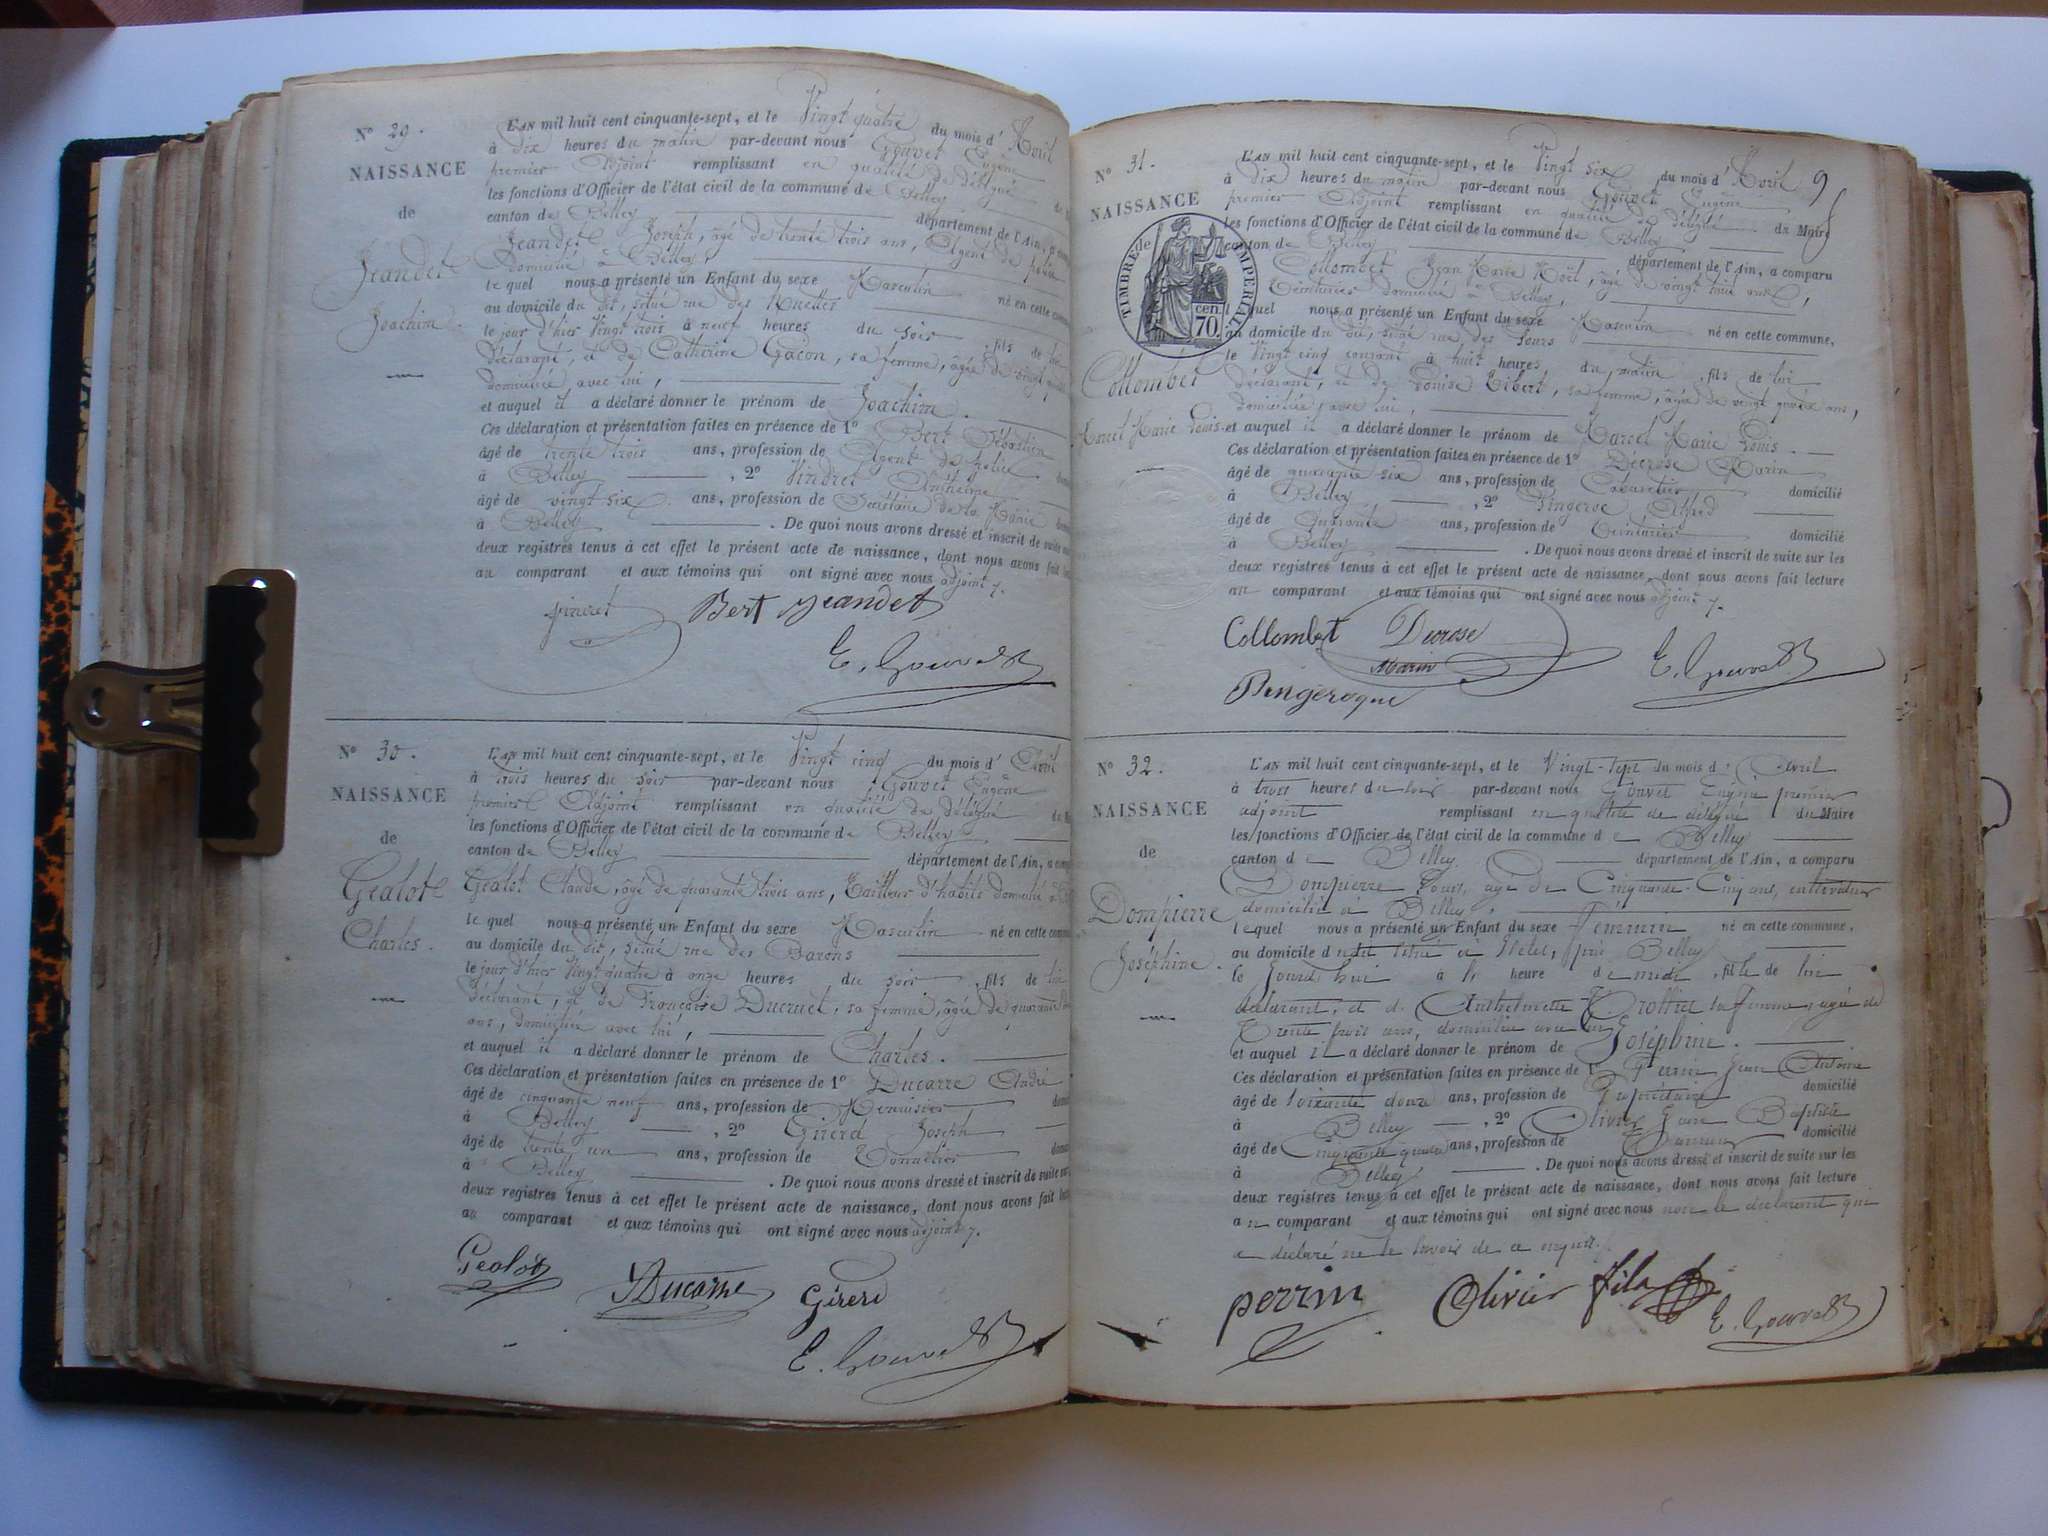 N° 29.
NAISSANCE
de
Jeandet
Joachim.
L'AN mil huit cent cinquante-sept, et le Vingt quatre du mois d' Avril
à dix heures du matin par-devant nous Gouvet Eugène
premier Adjoint remplissant en qualité de délégué
les fonctions d'Officier de l'état civil de la commune de Belley
canton de Belley département de l'Ain, a
Jeandet Joseph, âgé de trente trois ans, Agent de police
domicilié à Belley,
lequel nous a présenté un Enfant du sexe Masculin né en cette
au domicile du dit, situé rue des Ruelles
le jour d'hier Vingt trois à neuf heures du soir, fils de lui
déclarant, et de Catherine Gacon, sa femme, âgée de vingt
domiciliée avec lui,
et auquel il a déclaré donner le prénom de Joachim.
Ces déclaration et présentation faites en présence de 1° Bert Sébastien
âgé de trente trois ans, profession de Agent de police
à Belley, 2° Vindret Anthelme
âgé de vingt six ans, profession de Secrétaire de la Mairie
à Belley. De quoi nous avons dressé et inscrit de suite
deux registres tenus à cet effet le présent acte de naissance, dont nous avons fait
au comparant et aux témoins qui ont signé avec nous adjoint.
Vindret Bert Jeandet
E. Gouvet
N° 30.
NAISSANCE
de
Gealot
Charles.
L'AN mil huit cent cinquante-sept, et le Vingt cinq du mois d' Avril
à trois heures du soir par-devant nous Gouvet Eugène
premier Adjoint remplissant en qualité de délégué
les fonctions d'Officier de l'état civil de la commune de Belley
canton de Belley département de l'Ain, a
Gealot Claude, âgé de quarante trois ans, Tailleur d'habits domicilié
lequel nous a présenté un Enfant du sexe Masculin né en cette
au domicile du dit, situé rue des Barons
le jour d'hier Vingt quatre à onze heures du soir, fils de lui
déclarant, et de Françoise Ducruet, sa femme, âgée de quarante
ans, domiciliée avec lui,
et auquel il a déclaré donner le prénom de Charles.
Ces déclaration et présentation faites en présence de 1° Ducarre André
âgé de cinquante neuf ans, profession de Menuisier
à Belley, 2° Girerd Joseph
âgé de trente un ans, profession de Tonnelier
à Belley. De quoi nous avons dressé et inscrit de suite sur
deux registres tenus à cet effet le présent acte de naissance, dont nous avons fait
au comparant et aux témoins qui ont signé avec nous adjoint.
Gealot Ducarre Girerd
E. Gouvet
9
N° 31.
NAISSANCE
de
TIMBRE IMPERIAL.
70 cen.
Collombet
Marcel Marie Louis.
L'AN mil huit cent cinquante-sept, et le Vingt six du mois d' Avril
à dix heures du matin par-devant nous Gouvet Eugène
premier Adjoint remplissant en qualité de délégué du Maire
les fonctions d'Officier de l'état civil de la commune de Belley
canton de Belley département de l'Ain, a comparu
Collombet Jean Marie Noël, âgé de vingt huit ans,
Teinturier domicilié à Belley,
lequel nous a présenté un Enfant du sexe Masculin né en cette commune,
au domicile du dit, situé rue des Tours
le Vingt cinq courant à huit heures du matin, fils de lui
déclarant, et de Louise Tibert, sa femme, âgée de vingt quatre ans,
domiciliée avec lui,
et auquel il a déclaré donner le prénom de Marcel Marie Louis.
Ces déclaration et présentation faites en présence de 1° Décrose Marin
âgé de quarante six ans, profession de Cabaretier domicilié
à Belley, 2° Pingeroe Alfred
âgé de Quarante ans, profession de Teinturier domicilié
à Belley. De quoi nous avons dressé et inscrit de suite sur les
deux registres tenus à cet effet le présent acte de naissance, dont nous avons fait lecture
au comparant et aux témoins qui ont signé avec nous adjoint.
Collombet Decrose
Marin E. Gouvet
Pingeroque
N° 32.
NAISSANCE
de
Dompierre
Joséphine.
L'AN mil huit cent cinquante-sept, et le Vingt-sept du mois d' Avril
à trois heures du soir par-devant nous Gouvet Eugène premier
adjoint remplissant en qualité de délégué du Maire
les fonctions d'Officier de l'état civil de la commune de Belley
canton de Belley département de l'Ain, a comparu
Dompierre Louis, âgé de Cinquante-Cinq ans, cultivateur
domicilié à Belley,
lequel nous a présenté un Enfant du sexe Féminin né en cette commune,
au domicile du dit situé à près Belley
le Jourd'hui à heure de midi, fille de lui
déclarant, et d'Anthelmette Trolliet sa femme âgée de
Trente trois ans, domiciliée avec lui
et auquel il a déclaré donner le prénom de Joséphine.
Ces déclaration et présentation faites en présence de 1° Perrin Jean Antoine
âgé de soixante douze ans, profession de Propriétaire domicilié
à Belley, 2° Olivier Jean Baptiste
âgé de Cinquante quatre ans, profession de domicilié
à Belley. De quoi nous avons dressé et inscrit de suite sur les
deux registres tenus à cet effet le présent acte de naissance, dont nous avons fait lecture
au comparant et aux témoins qui ont signé avec nous non le déclarant qui
a déclaré ne le savoir de ce enquis.
perrin Olivier fils E. Gouvet